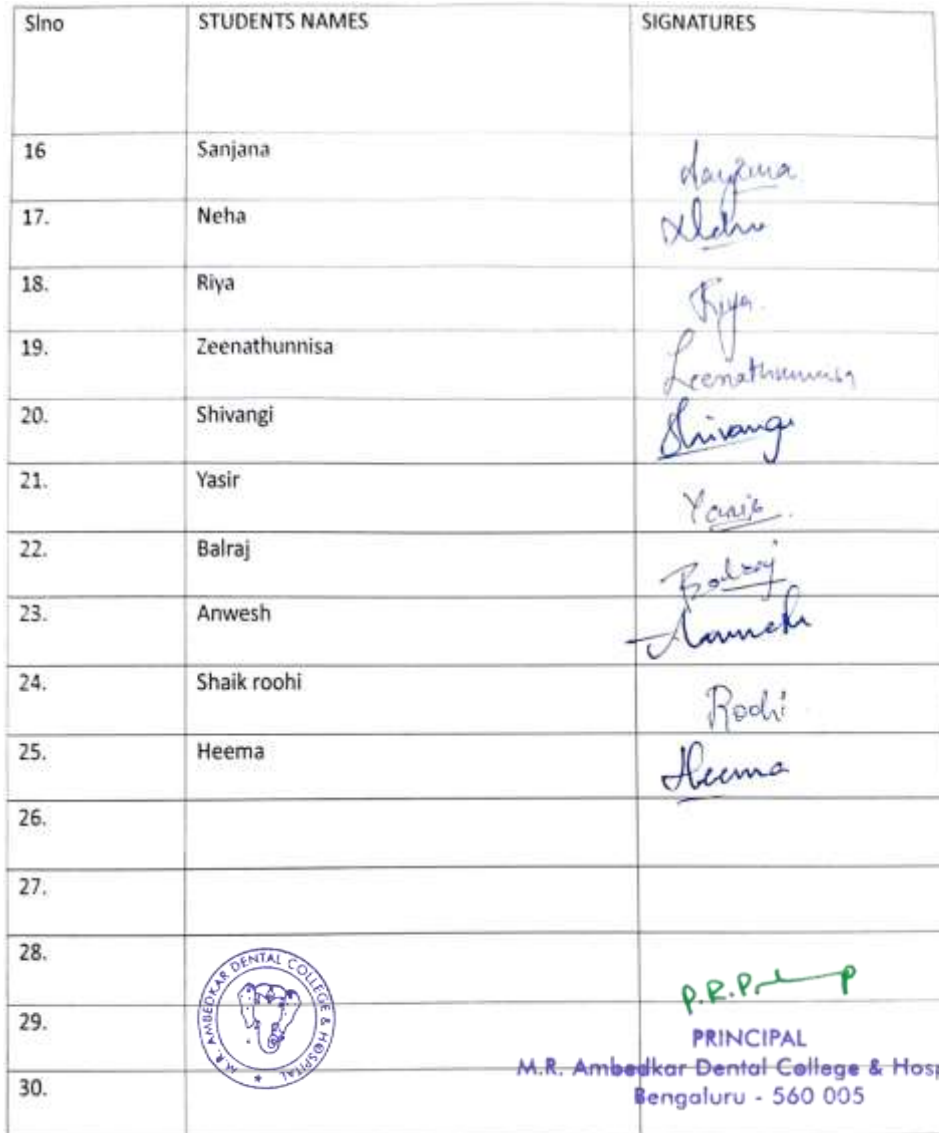 Slno STUDENTS NAMES SIGNATURES
16 Sanjana Sanjana
17. Neha Neha
18. Riya Riya.
19. Zeenathunnisa Zeenathunnisa
20. Shivangi Shivangi
21. Yasir Yasir.
22. Balraj Balraj
23. Anwesh
24. Shaik roohi Roohi
25. Heema Heema
26.
27.
28.
M.R. AMBEDKAR DENTAL COLLEGE & HOSPITAL
P.R.P
29.
PRINCIPAL
M.R. Ambedkar Dental College & Hosp
30.
Bengaluru - 560 005